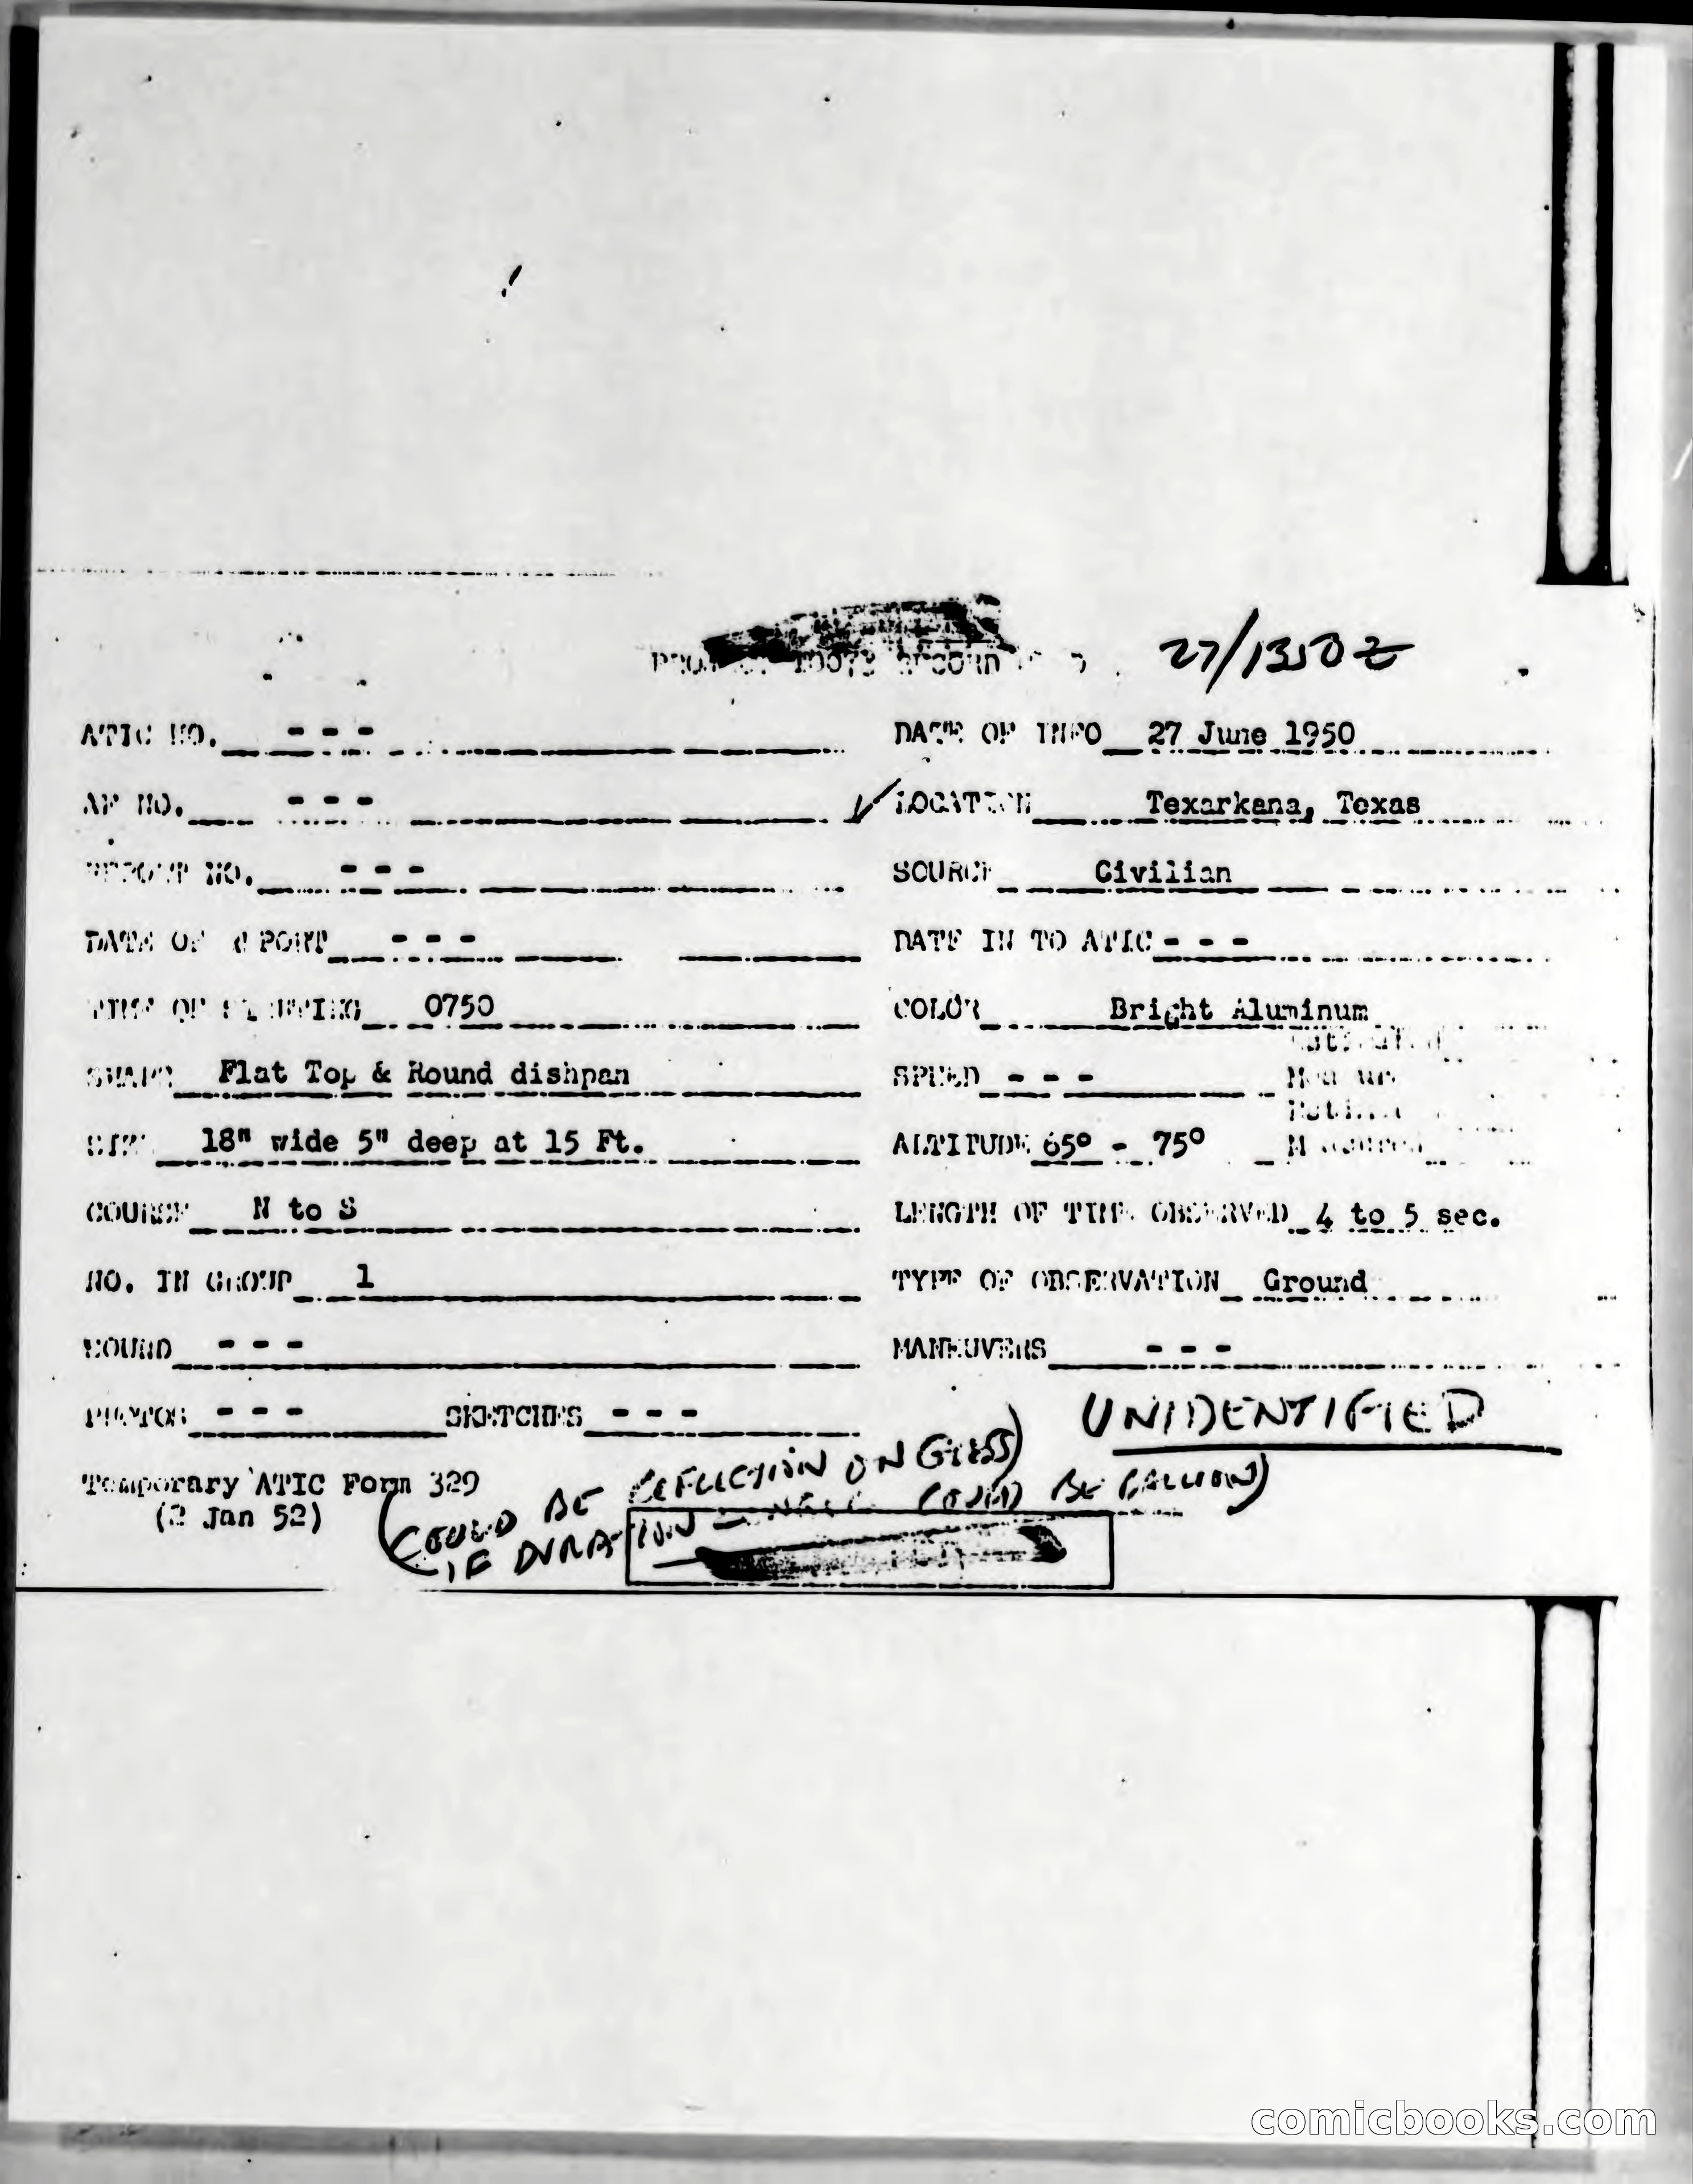 27/1350Z
ATIC NO. - - - DATE OF INFO 27 June 1950
AF NO. - - - ✓ LOCATION Texarkana, Texas
REPORT NO. - - - SOURCE Civilian
DATE OF REPORT - - - DATE IN TO ATIC - - -
TIME OF SIGHTING 0750 COLOR Bright Aluminum
SHAPE Flat Top & Round dishpan SPEED - - -
SIZE 18" wide 5" deep at 15 Ft. ALTITUDE 65° - 75°
COURSE N to S LENGTH OF TIME OBSERVED 4 to 5 sec.
NO. IN GROUP 1 TYPE OF OBSERVATION Ground
SOUND - - - MANEUVERS - - -
PHOTOS - - - SKETCHES - - -
UNIDENTIFIED
Temporary ATIC Form 329
(2 Jan 52)
(COULD BE REFLECTION ON GLASS)
IF DURATION COULD BE BALLOON)
comicbooks.com